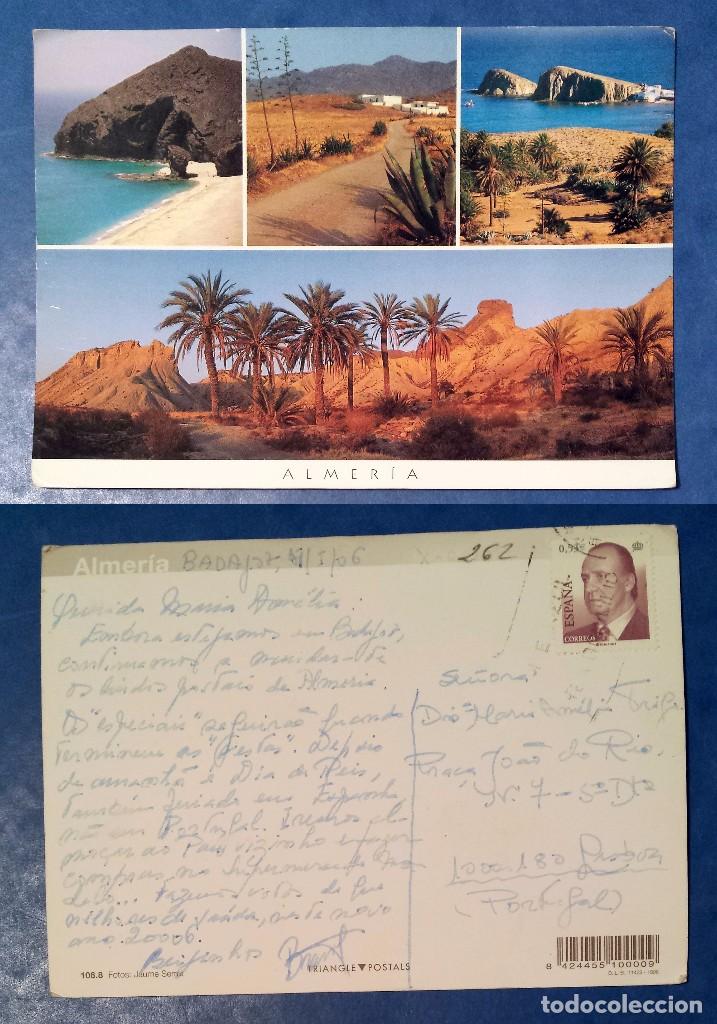 ALMERÍA
Almería BADAJOZ, 4/I/06 262
0,53€
ESPAÑA
CORREOS
Querida Maria Amélia:
Embora estejamos em Badajoz,
continuamos a mandar-te
os lindos postais de Almeria.
Os "especiais" seguirão quando
terminem as "festas". Depois
de amanhã é Dia de Reis,
também feriado em Espanha
não em Portugal. Iremos al-
moçar ao País vizinho e fazer
compras, no Supermercado
votos de que
melhores de saúde, neste novo
ano 20006.
Beijinhos
Señora
Maria Amélia
Praça João do Rio
Nº 7 - 5º Dtº
1000-180 Lisboa
(Portugal)
108.8 Fotos: Jaume Serrat
TRIANGLE▼POSTALS
8 424455 100009
todocoleccion